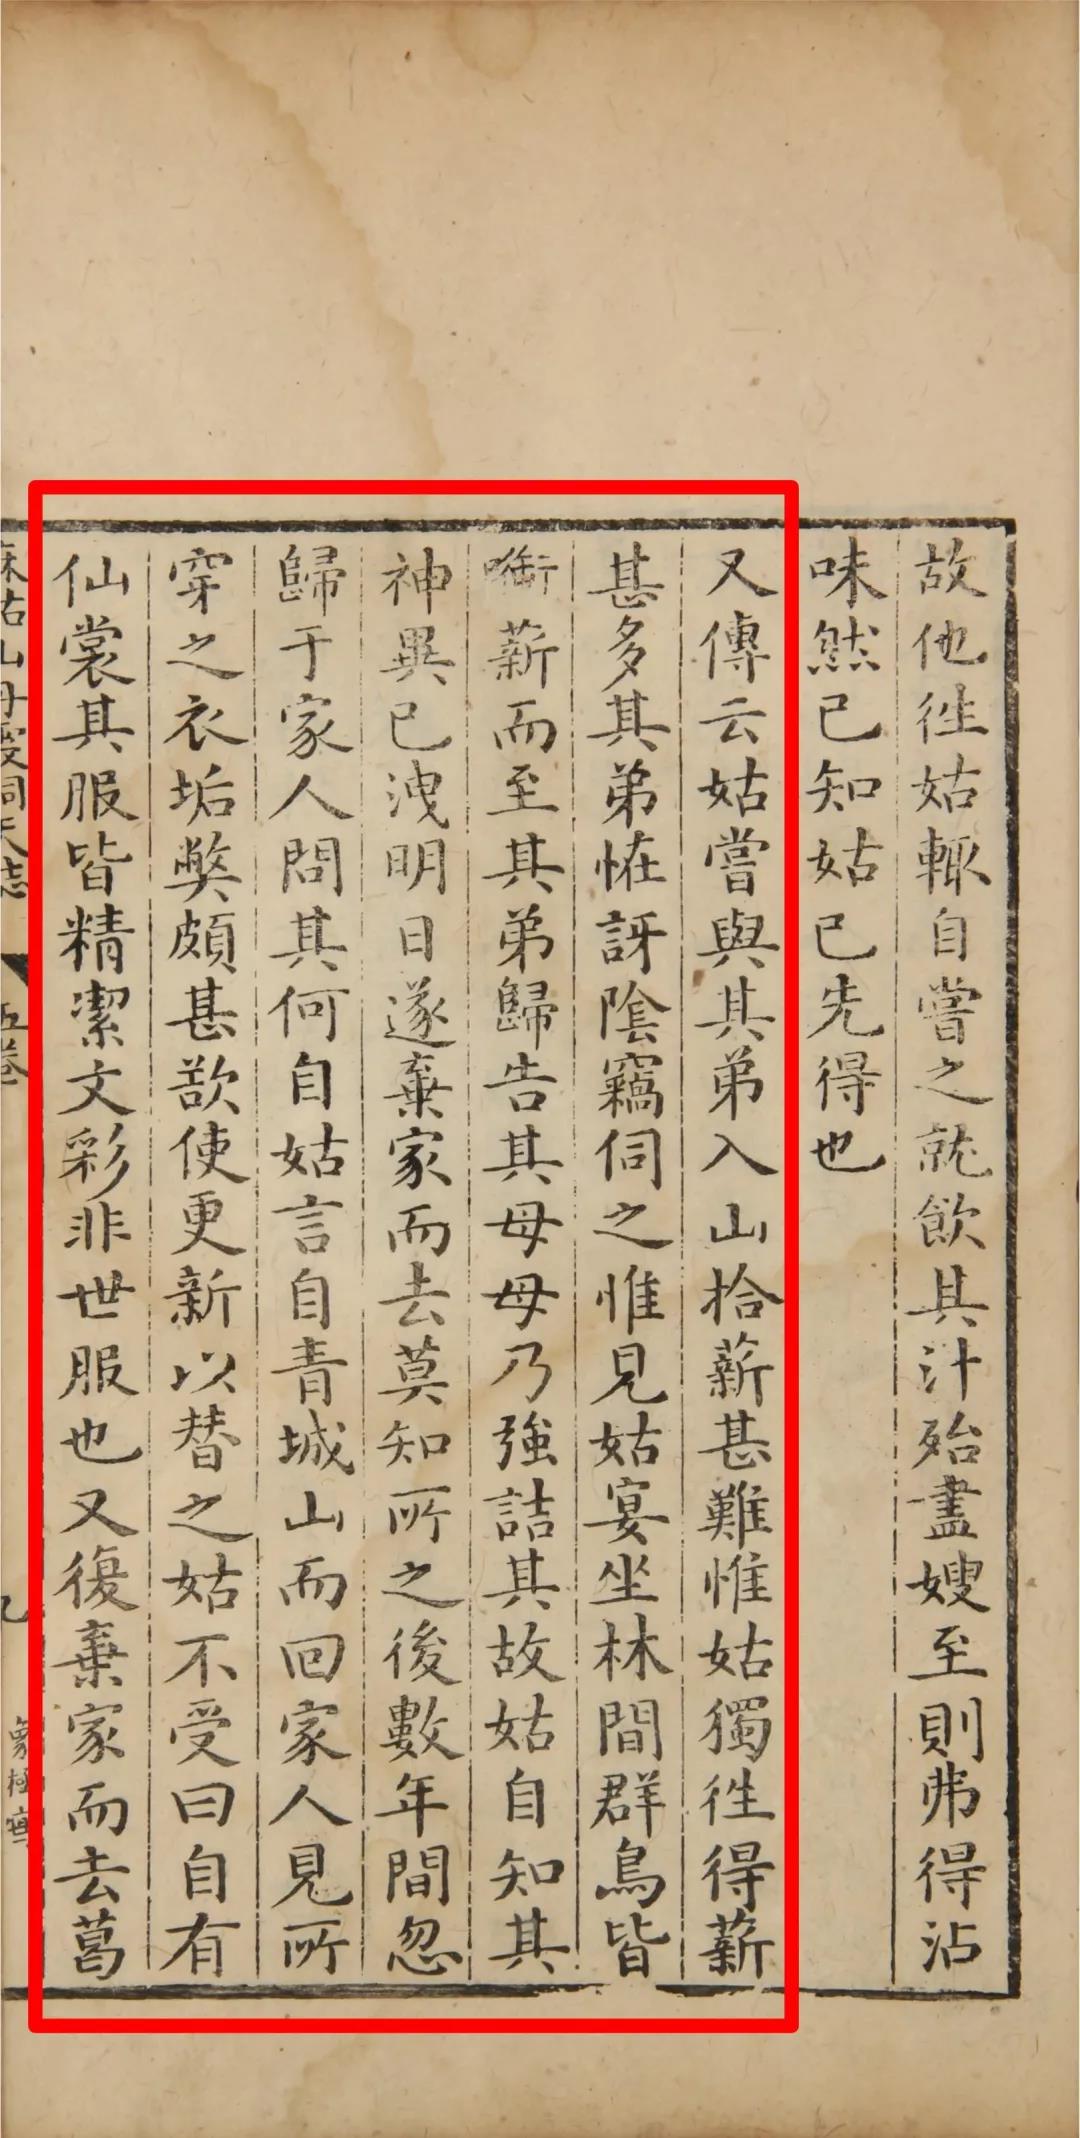 故他徃姑輙自嘗之就飲其汁殆盡嫂至則弗得沾
味然已知姑已先得也
又傳云姑嘗與其弟入山拾薪甚難惟姑獨徃得薪
甚多其弟恠訝陰竊伺之惟見姑宴坐林間群鳥皆
啣薪而至其弟歸告其母母乃強詰其故姑自知其
神異已洩明日遂棄家而去莫知所之後數年間忽
歸于家人問其何自姑言自青城山而回家人見所
穿之衣垢弊頗甚欲使更新以替之姑不受曰自有
仙裳其服皆精潔文彩非世服也又復棄家而去葛
麻姑山丹霞洞天志
五卷
九